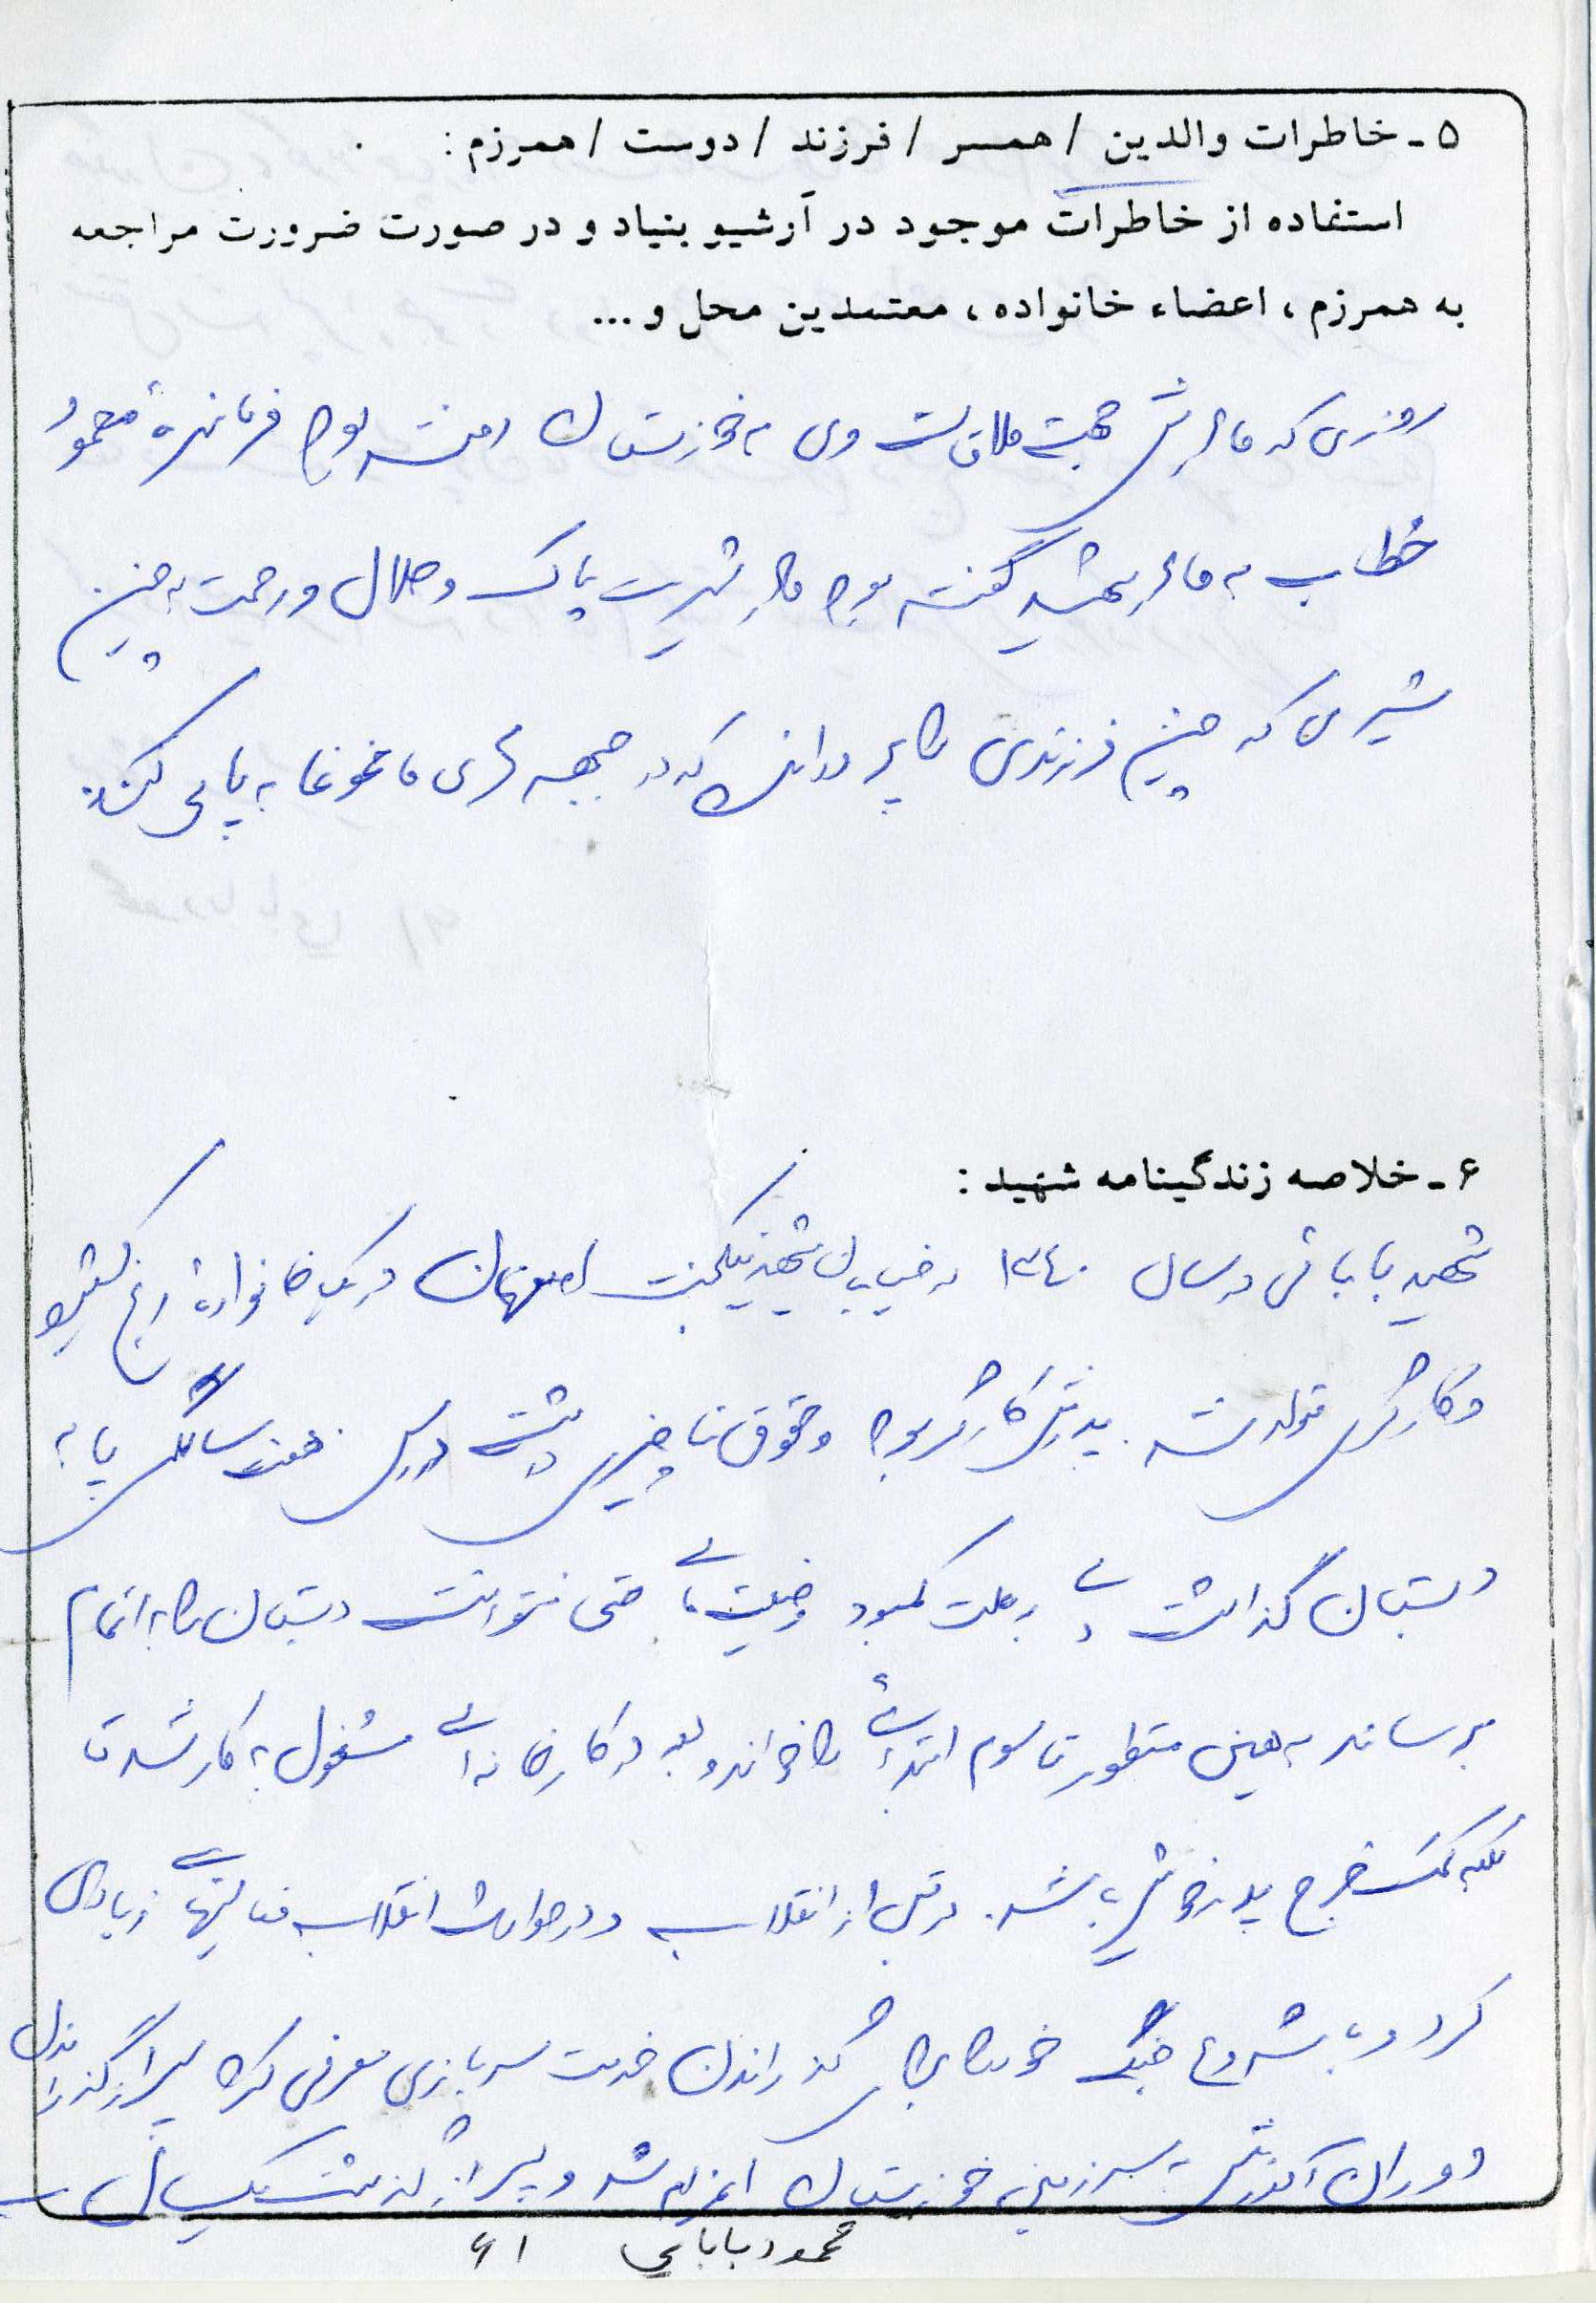 ۵ - خاطرات والدین / همسر / فرزند / دوست / همرزم :
استفاده از خاطرات موجود در آرشیو بنیاد و در صورت ضرورت مراجعه
به همرزم ، اعضاء خانواده ، معتمدین محل و ...
روزی که مادرش جهت ملاقات وی به خوزستان رفته بود فرمانده محمود
خطاب به مادر شهید گفته بود مادر شیرت پاک و حلال و رحمت به چنین
شیری که چنین فرزندی را پروراند که در جبهه های ما غوغا به پا می کند.
۶ - خلاصه زندگینامه شهید :
شهید بابائی در سال ۱۳۴۰ در خیابان شهید نیکبخت اصفهان در یک خانواده رنج کشیده
و کارگری متولد شد. پدرش کارگر بود و حقوق ناچیزی داشت در سن هفت سالگی پا به
دبستان گذاشت ولی به علت کمبود وضعیت مالی حتی نتوانست دبستان را به اتمام
برساند به همین منظور تا سوم ابتدائی را خواند و بعد در کارخانه ای مشغول به کار شد تا
بلکه کمک خرج پدر خویش باشد. در قبل از انقلاب و در حوادث انقلاب فعالیتهای زیادی
کرد و با شروع جنگ خود را برای گذراندن خدمت سربازی معرفی کرد پس از گذراندن
دوران آموزشی به سرزمین خوزستان اعزام شد و پس از گذشت یکسال
محمود بابایی ۶۱